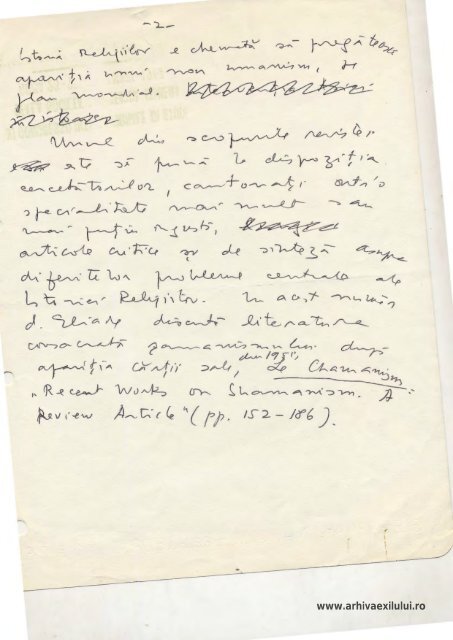 -2-
Istoria Religiilor e chemată să pregătească
apariția unui nou umanism, pe
plan mondial.
Unul din scopurile revistei
este să pună la dispoziția
cercetătorilor, cantonați într'o
specialitate mai mult sau
mai puțin îngustă,
articole critice și de sinteză asupra
diferitelor probleme centrale ale
Istoriei Religiilor. In acest număr
d. Eliade discută literatura
consacrată șamanismului după
apariția cărții sale, din 1951, Le Chamanism:
"Recent Works on Shamanism. A
Review Article" (pp. 152-186).
www.arhivaexilului.ro